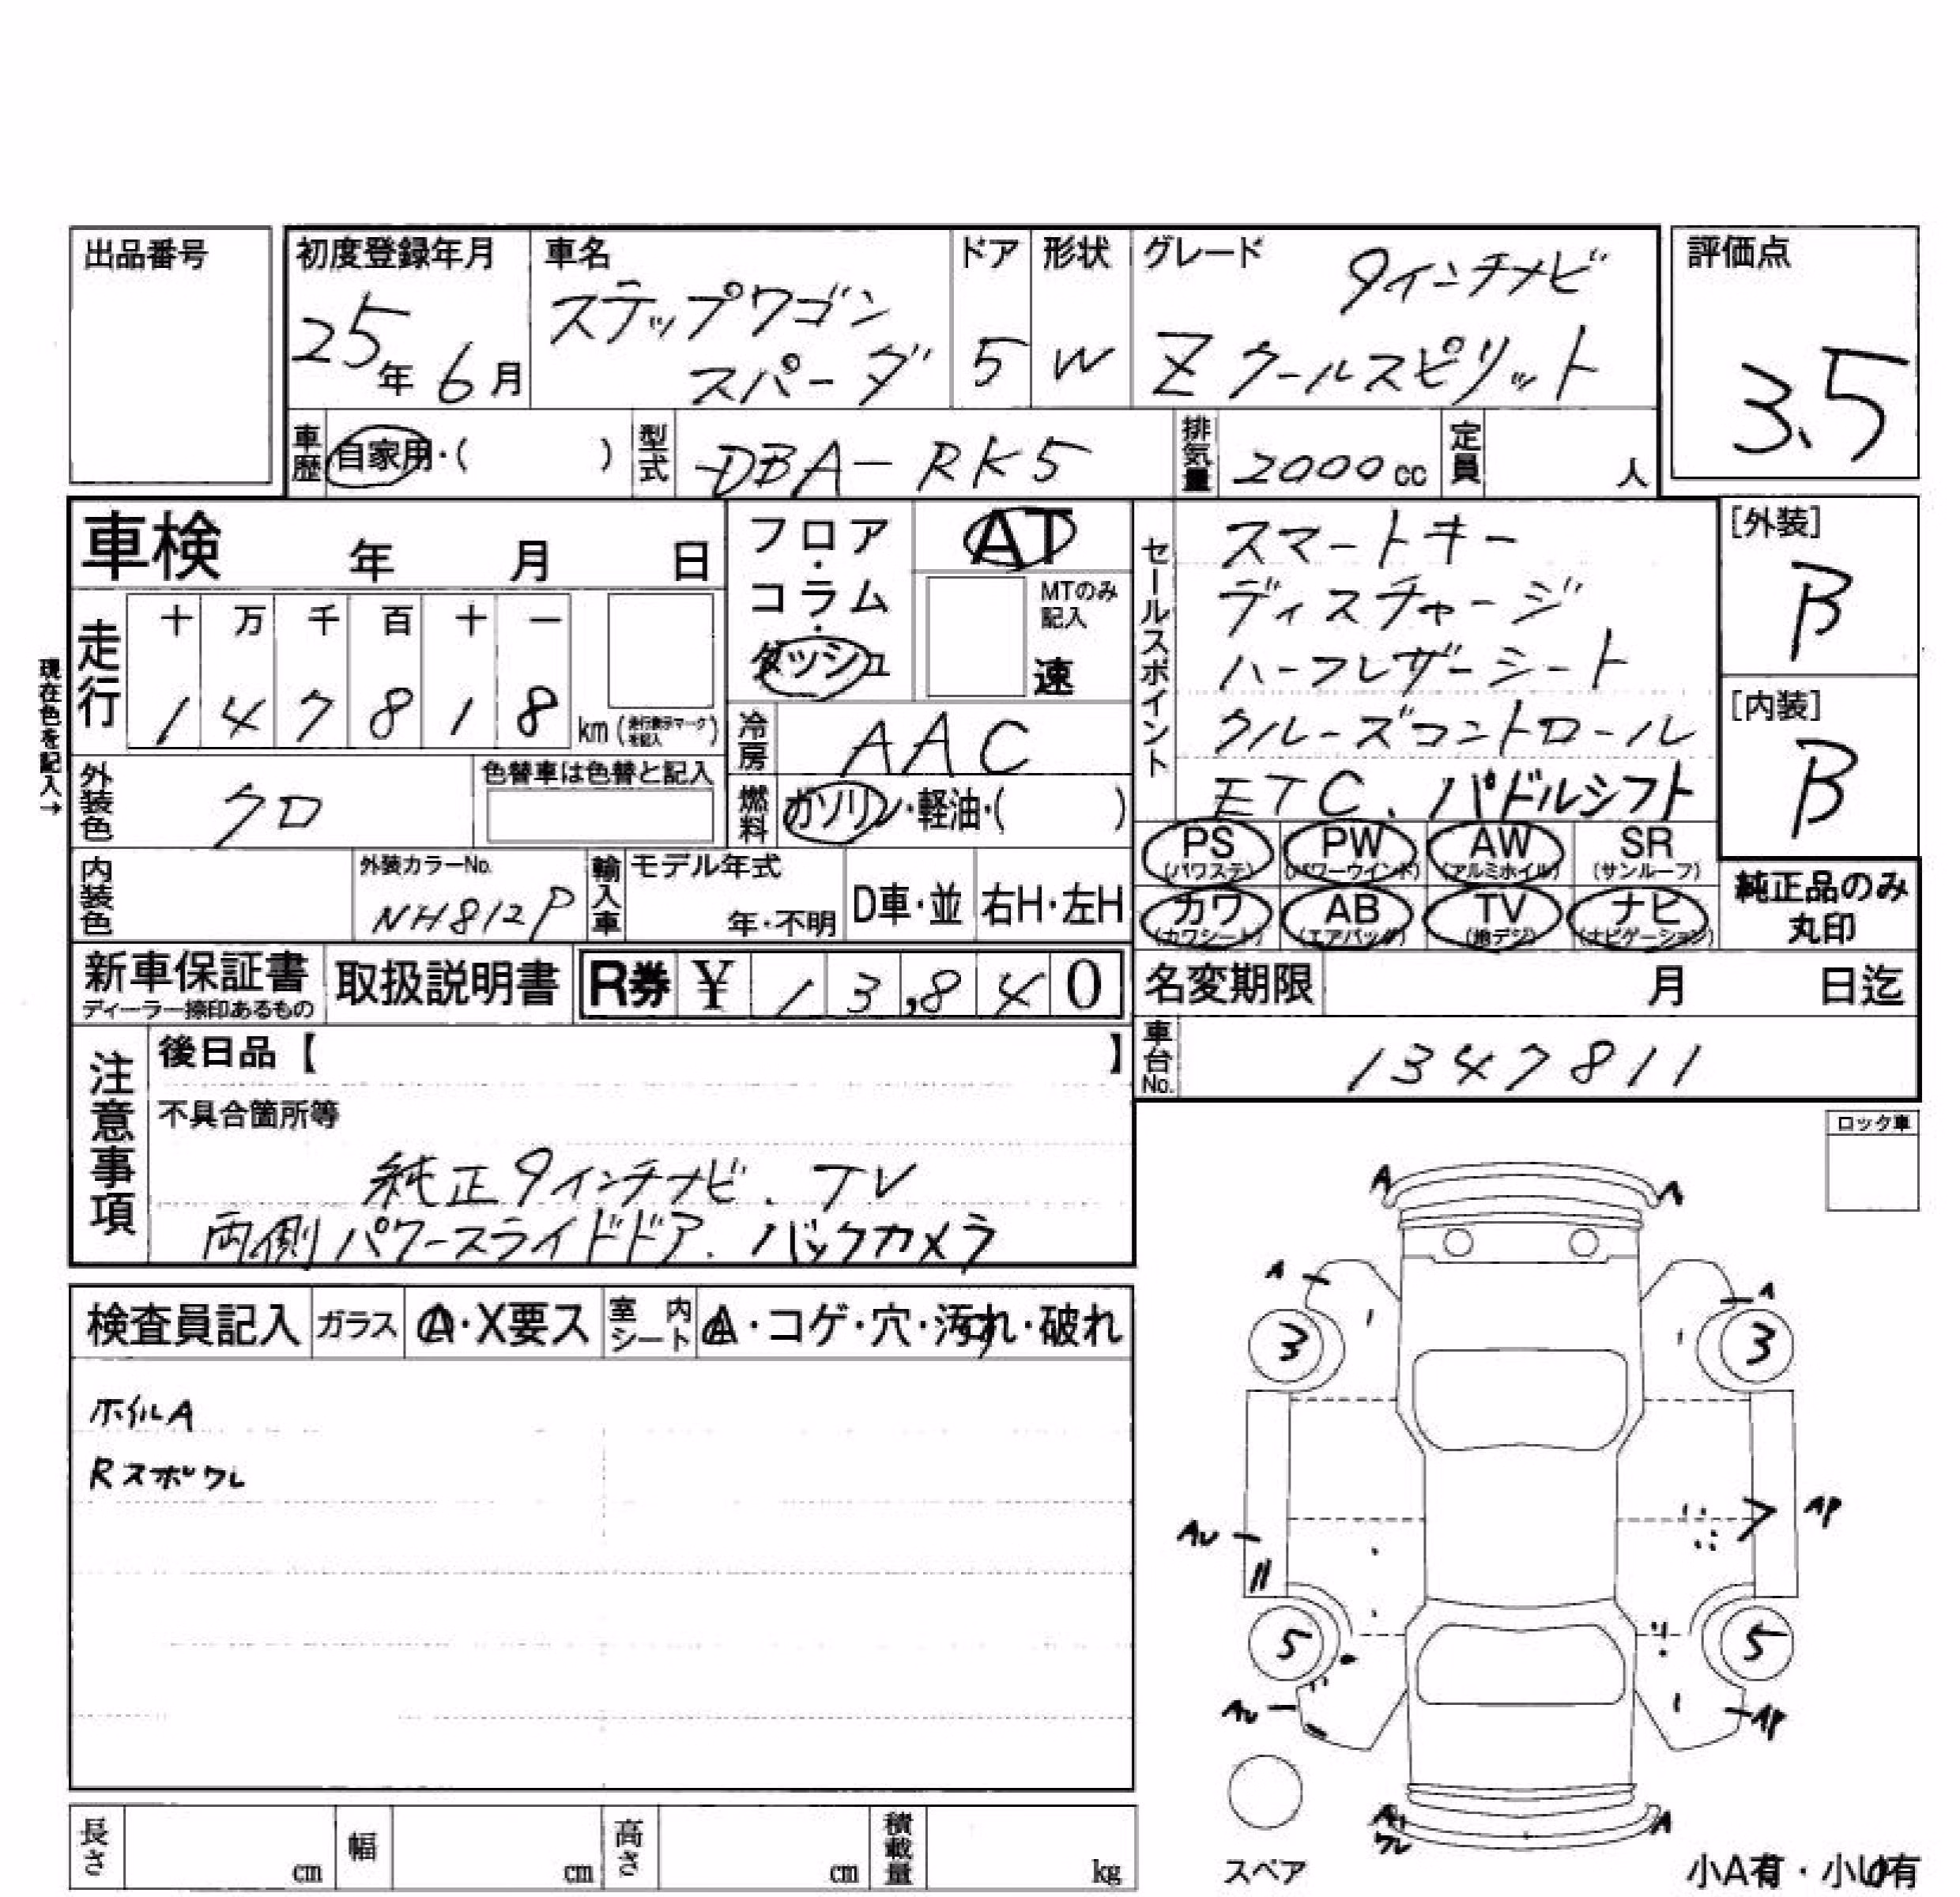 出品番号
初度登録年月 車名 ドア 形状 グレード 評価点
9インチナビ
ステップワゴン
25年 6月 スパーダ 5 W Zクールスピリット 3.5
車歴 自家用・( ) 型式 DBA-RK5 排気量 2000cc 定員 人
車検 年 月 日
フロア・コラム・ダッシュ
AT
MTのみ記入
速
セールスポイント
スマートキー
ディスチャージ
ハーフレザーシート
クルーズコントロール
ETC、パドルシフト
[外装]
B
[内装]
B
現在色を記入→
走行 十 万 千 百 十 一
1 4 7 8 1 8 km (走行表示マークを記入)
冷房 AAC
外装色 クロ 色替車は色替と記入
燃料 ガソリン・軽油・( )
PS (パワステ) PW (パワーウインド) AW (アルミホイル) SR (サンルーフ)
カワ (カワシート) AB (エアバッグ) TV (地デジ) ナビ (ナビゲーション)
純正品のみ丸印
内装色 外装カラーNo. NH812P 輸入車 モデル年式 年・不明 D車・並 右H・左H
新車保証書 取扱説明書 R券 ¥ 13,840
ディーラー捺印あるもの
名変期限 月 日迄
車台No. 1347811
注意事項
後日品【 】
不具合箇所等
純正9インチナビ、TV
両側パワースライドドア、バックカメラ
ロック車
検査員記入 ガラス A・X要ス 室内シート A・コゲ・穴・汚れ・破れ
ホイルA
Rスポワレ
A A
A A
3 3
AU AP
5 5
AU AP
A
ワレ
スペア
小A有・小U有
長さ cm 幅 cm 高さ cm 積載量 kg